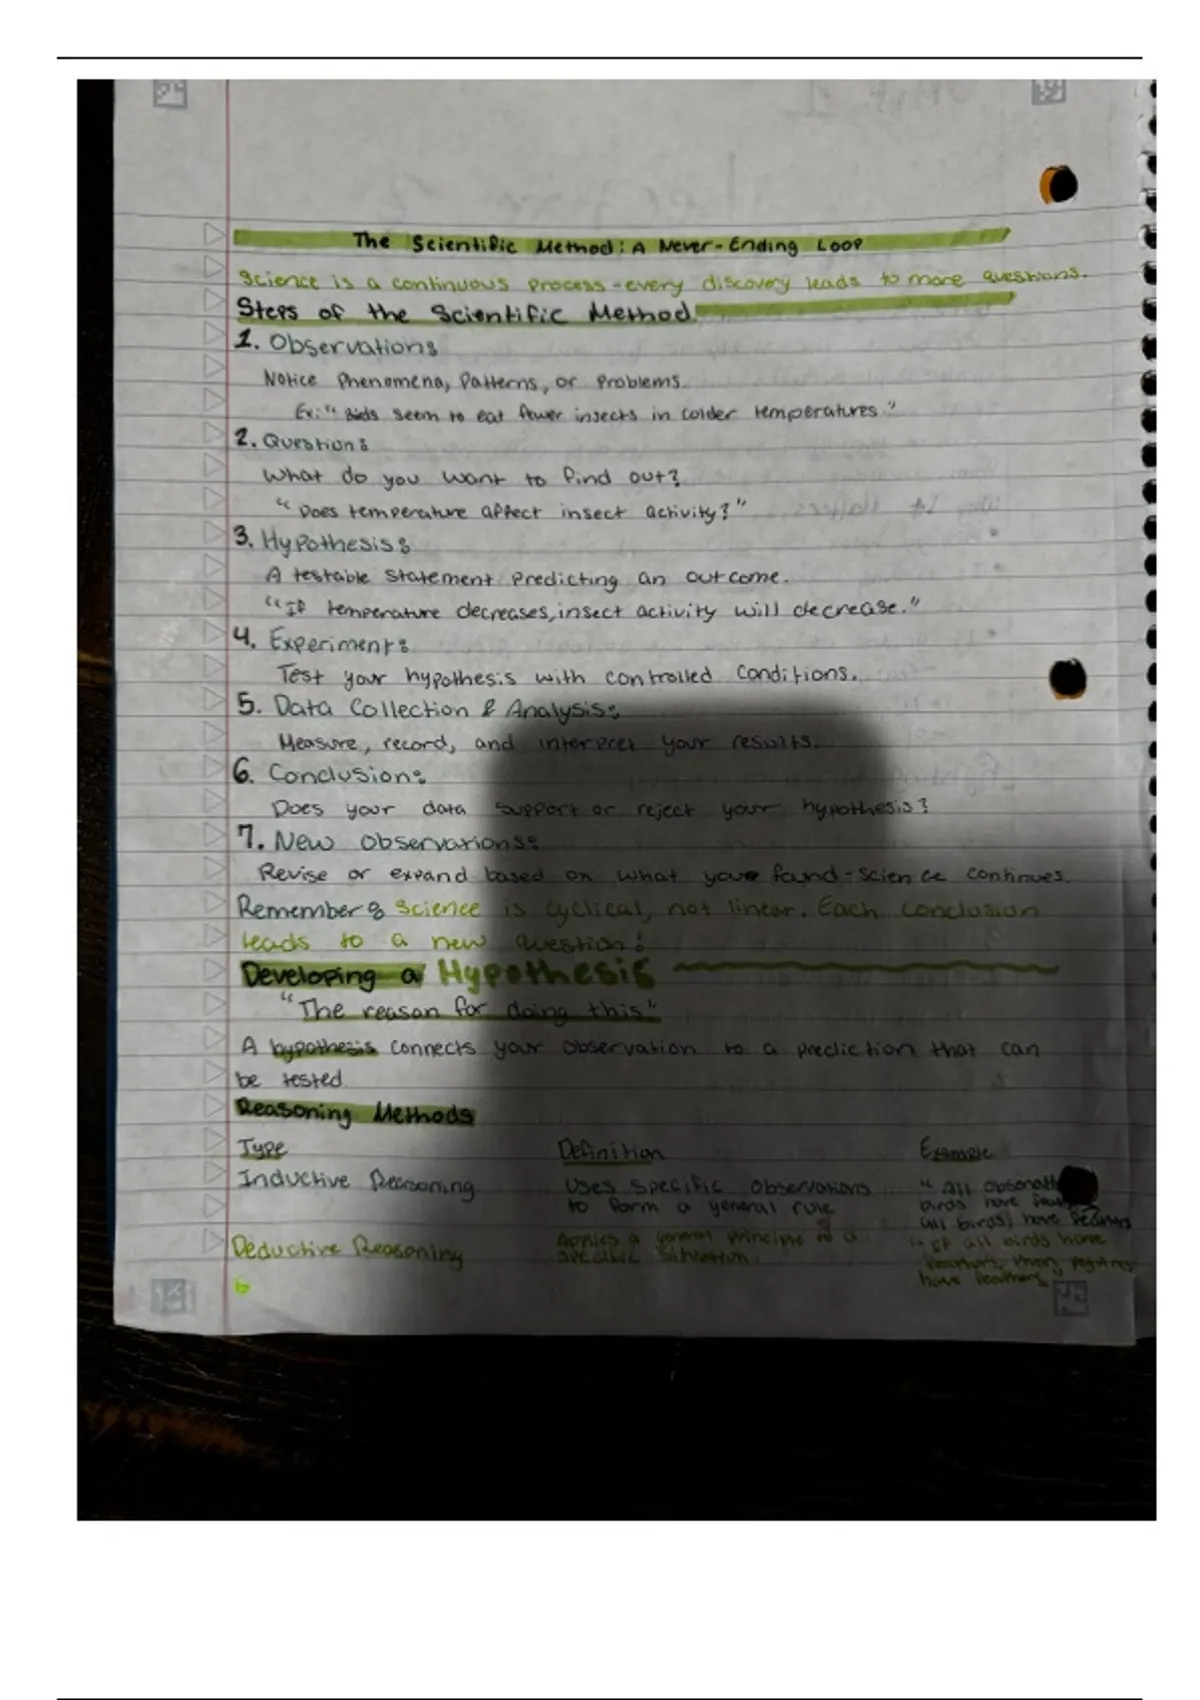 The Scientific Method: A Never-Ending Loop
Science is a continuous process-every discovery leads to more questions.
Steps of the Scientific Method
1. Observation:
Notice Phenomena, Patterns, or Problems.
Ex: "Birds seem to eat fewer insects in colder temperatures."
2. Question:
What do you want to find out?
"Does temperature affect insect activity?"
3. Hypothesis:
A testable statement predicting an outcome.
"If temperature decreases, insect activity will decrease."
4. Experiment:
Test your hypothesis with controlled conditions.
5. Data Collection & Analysis:
Measure, record, and interpret your results.
6. Conclusion:
Does your data support or reject your hypothesis?
7. New Observations:
Revise or expand based on what you found-science continues.
Remember: Science is cyclical, not linear. Each conclusion
leads to a new question!
Developing a Hypothesis
"The reason for doing this"
A hypothesis connects your observation to a prediction that can
be tested.
Reasoning Methods
Type Definition Example
Inductive Reasoning Uses specific observations "All
to form a general rule birds have
all birds have feathers
Deductive Reasoning Applies a general principle to a "If all birds have
specific situation. feathers, then
have feathers"
6